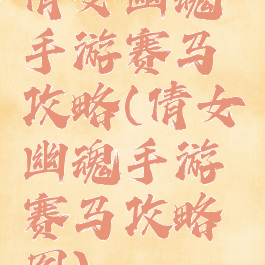 倩女幽魂
手游赛马
攻略(倩女
幽魂手游
赛马攻略
图)